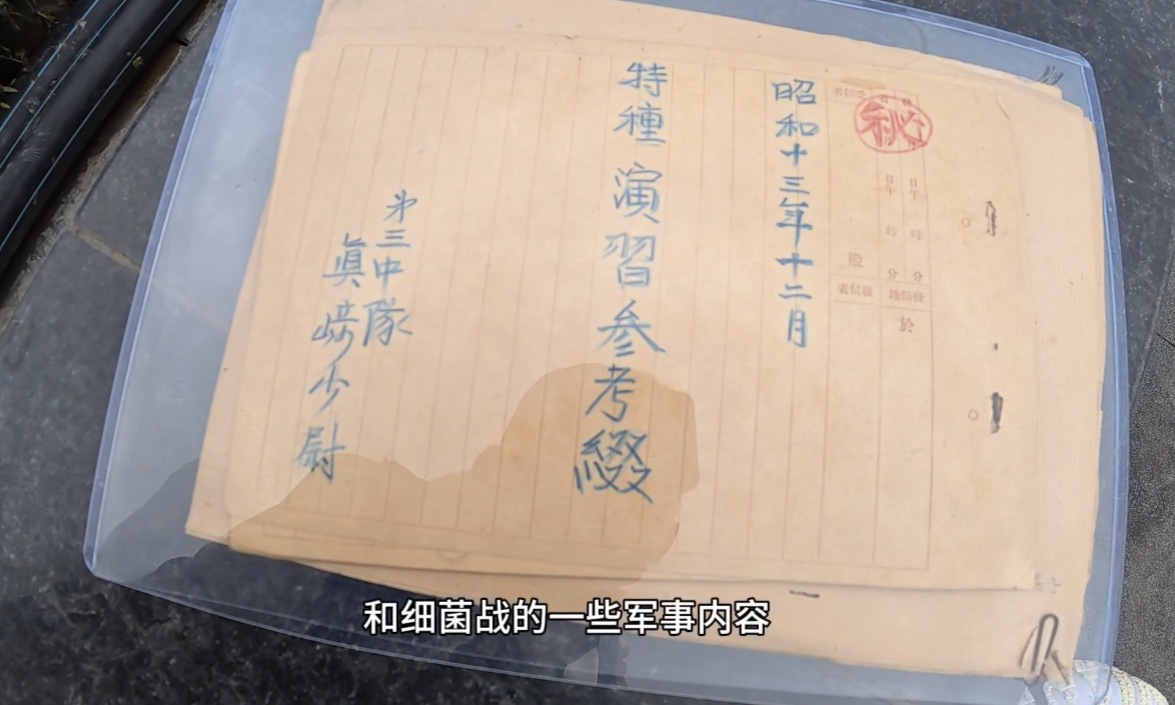 秘
受信者
月 日 午 時 分
月 日 午 時 分
殿
發信者
發信地
於
昭和十三年十二月
特種演習参考綴
第三中隊
眞﨑少尉
和细菌战的一些军事内容